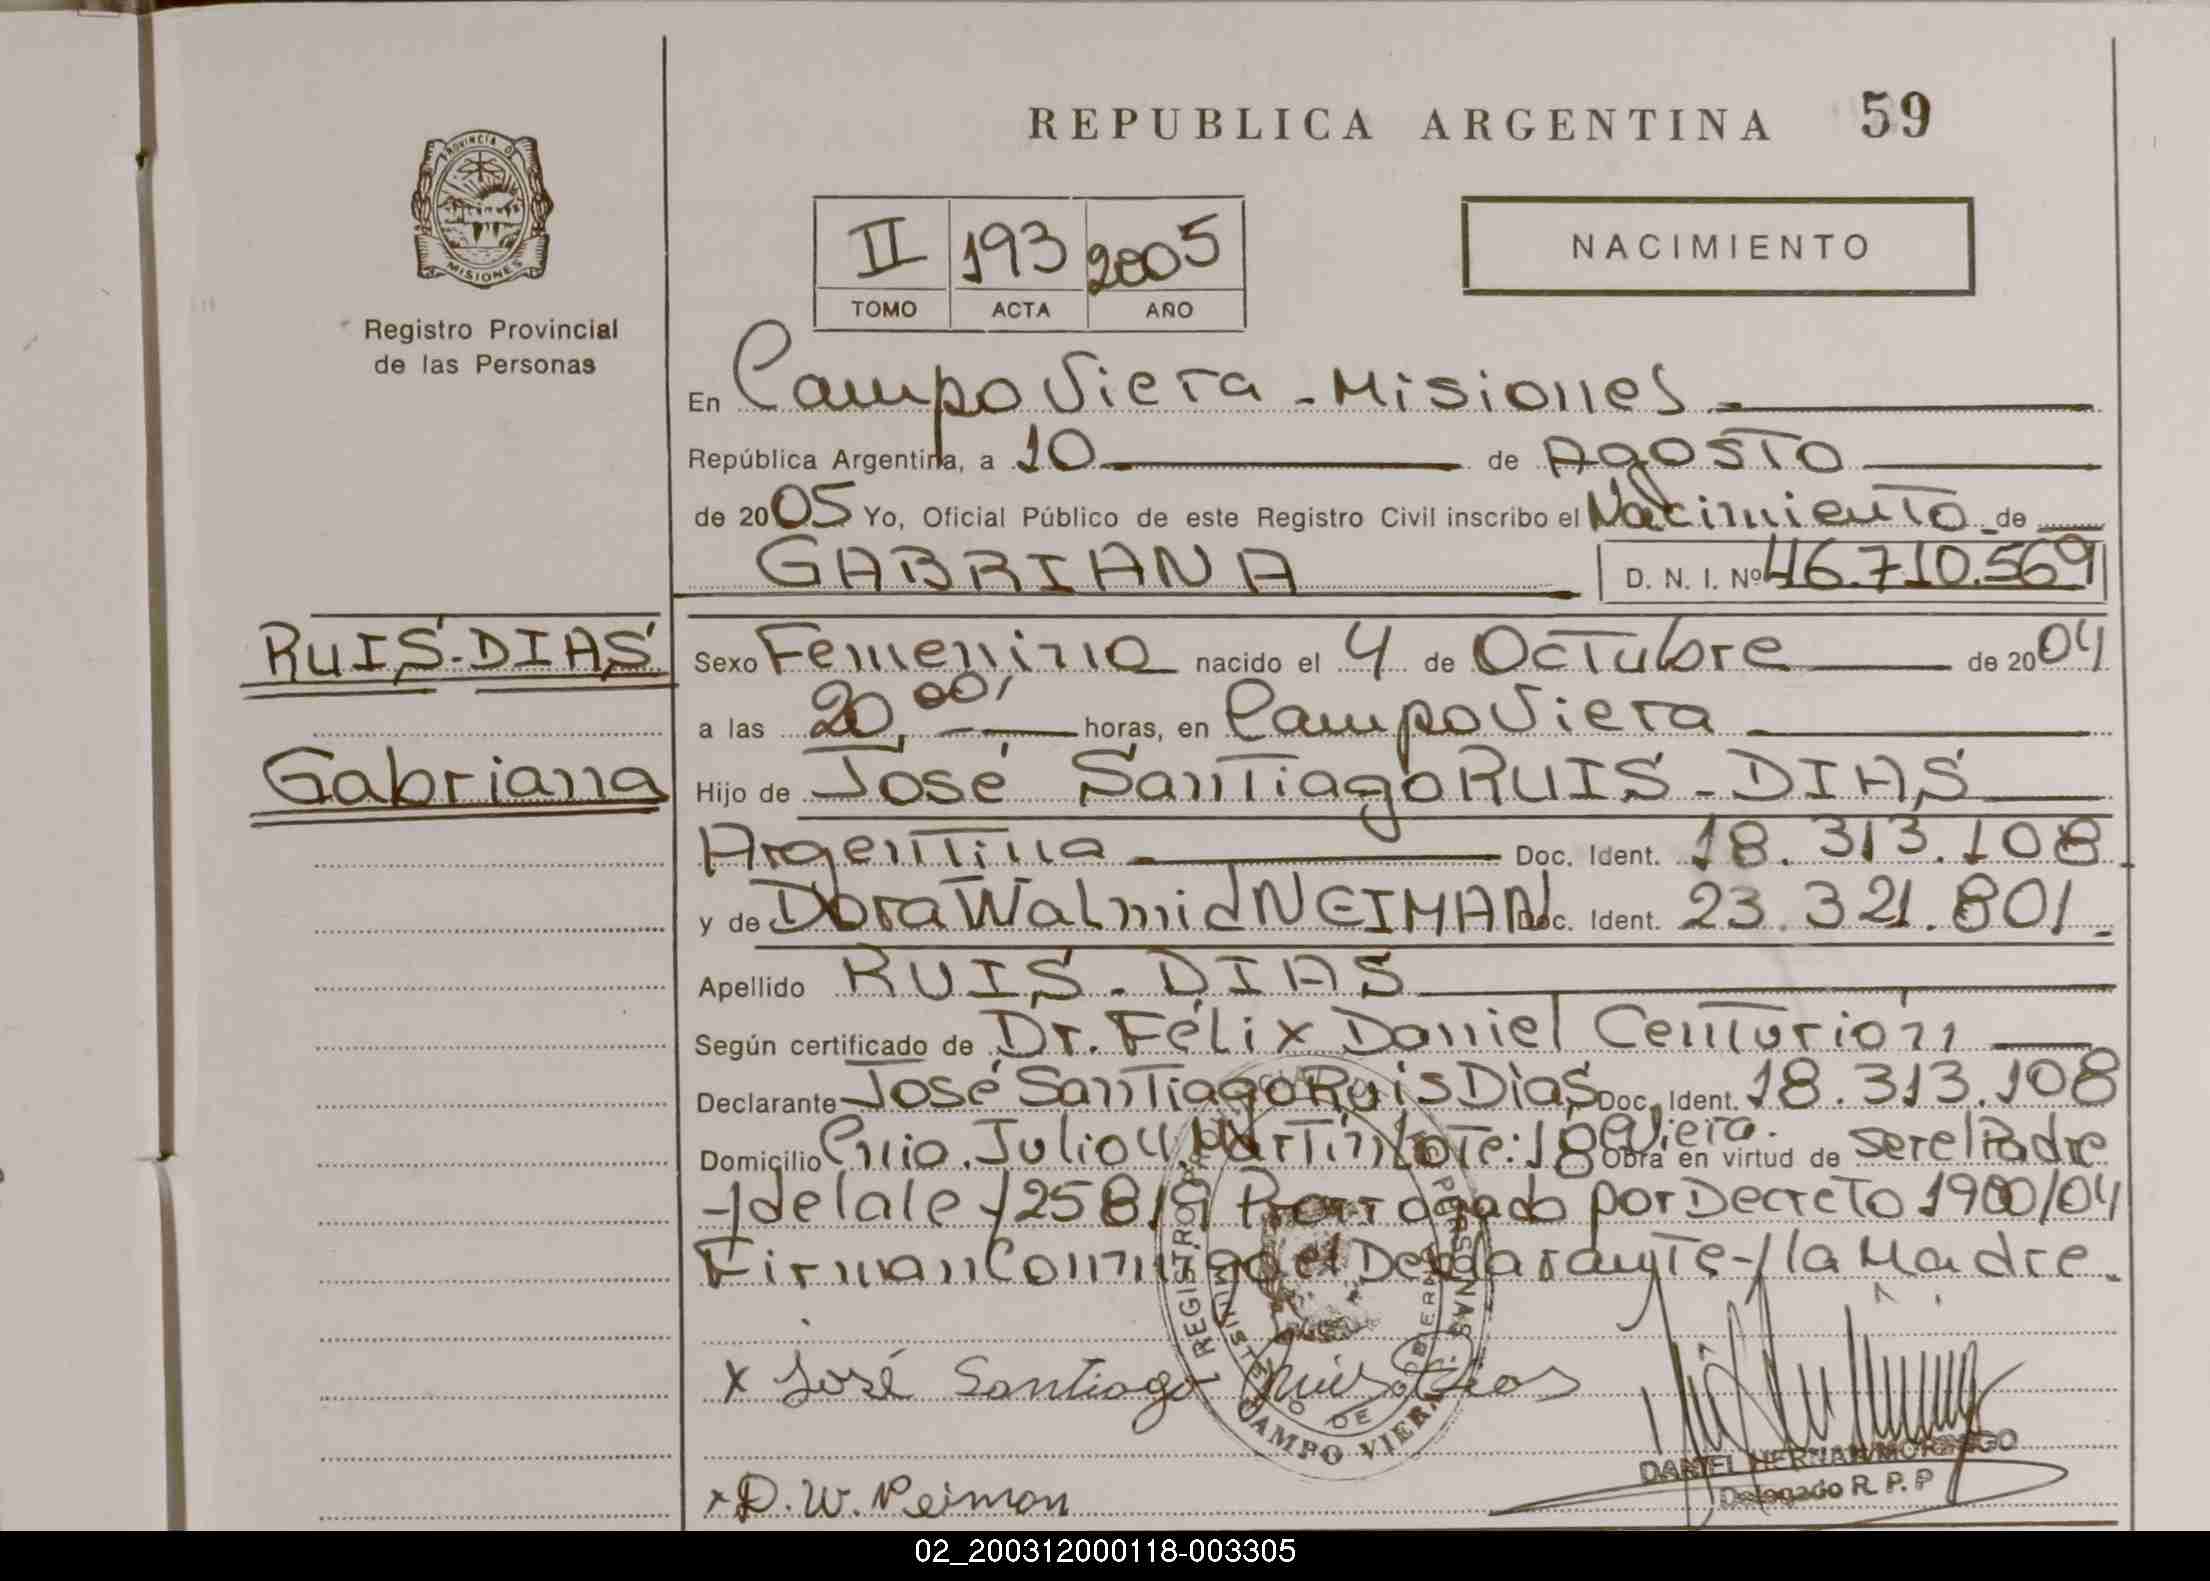 REPUBLICA ARGENTINA 59
PROVINCIA DE
MISIONES
Registro Provincial
de las Personas
II 193 2005
TOMO ACTA AÑO
NACIMIENTO
En Campo Viera - Misiones
República Argentina, a 10 de Agosto
de 2005 Yo, Oficial Público de este Registro Civil inscribo el Nacimiento de
GABRIANA D. N. I. Nº 46.710.569
RUIS-DIAS
Sexo Femenino nacido el 4 de Octubre de 2004
a las 20,00 horas, en Campo Viera
Gabriana
Hijo de José Santiago RUIS-DIAS
Argentina Doc. Ident. 18.313.108
y de Dora Walmid NEIMAN Doc. Ident. 23.321.801
Apellido RUIS-DIAS
Según certificado de Dr. Félix Daniel Centurión
Declarante José Santiago Ruis Dias Doc. Ident. 18.313.108
Domicilio Julio U. Martín Lote: 18 Viera. Obra en virtud de ser el Padre
Prorrogado por Decreto 1900/04
Firman Conmigo el Declarante y la Madre.
x José Santiago Ruis Dias
REGISTRO PERSONAS
MINISTERIO DE GOBIERNO
CAMPO VIERA
x D. W. Neiman
DANIEL HERNAN
Delegado R. P. P
02_200312000118-003305